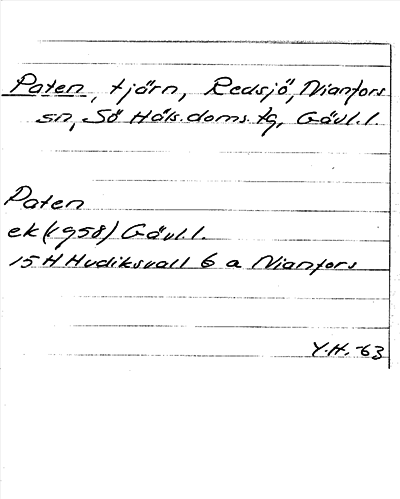 Paten, tjärn, Redsjö, Nianfors
sn, Sö Häls. doms. tg, Gävl. l
Paten
ek (1958) Gävl. l.
15 H Hudiksvall 6 a Nianfors
Y.H.-63